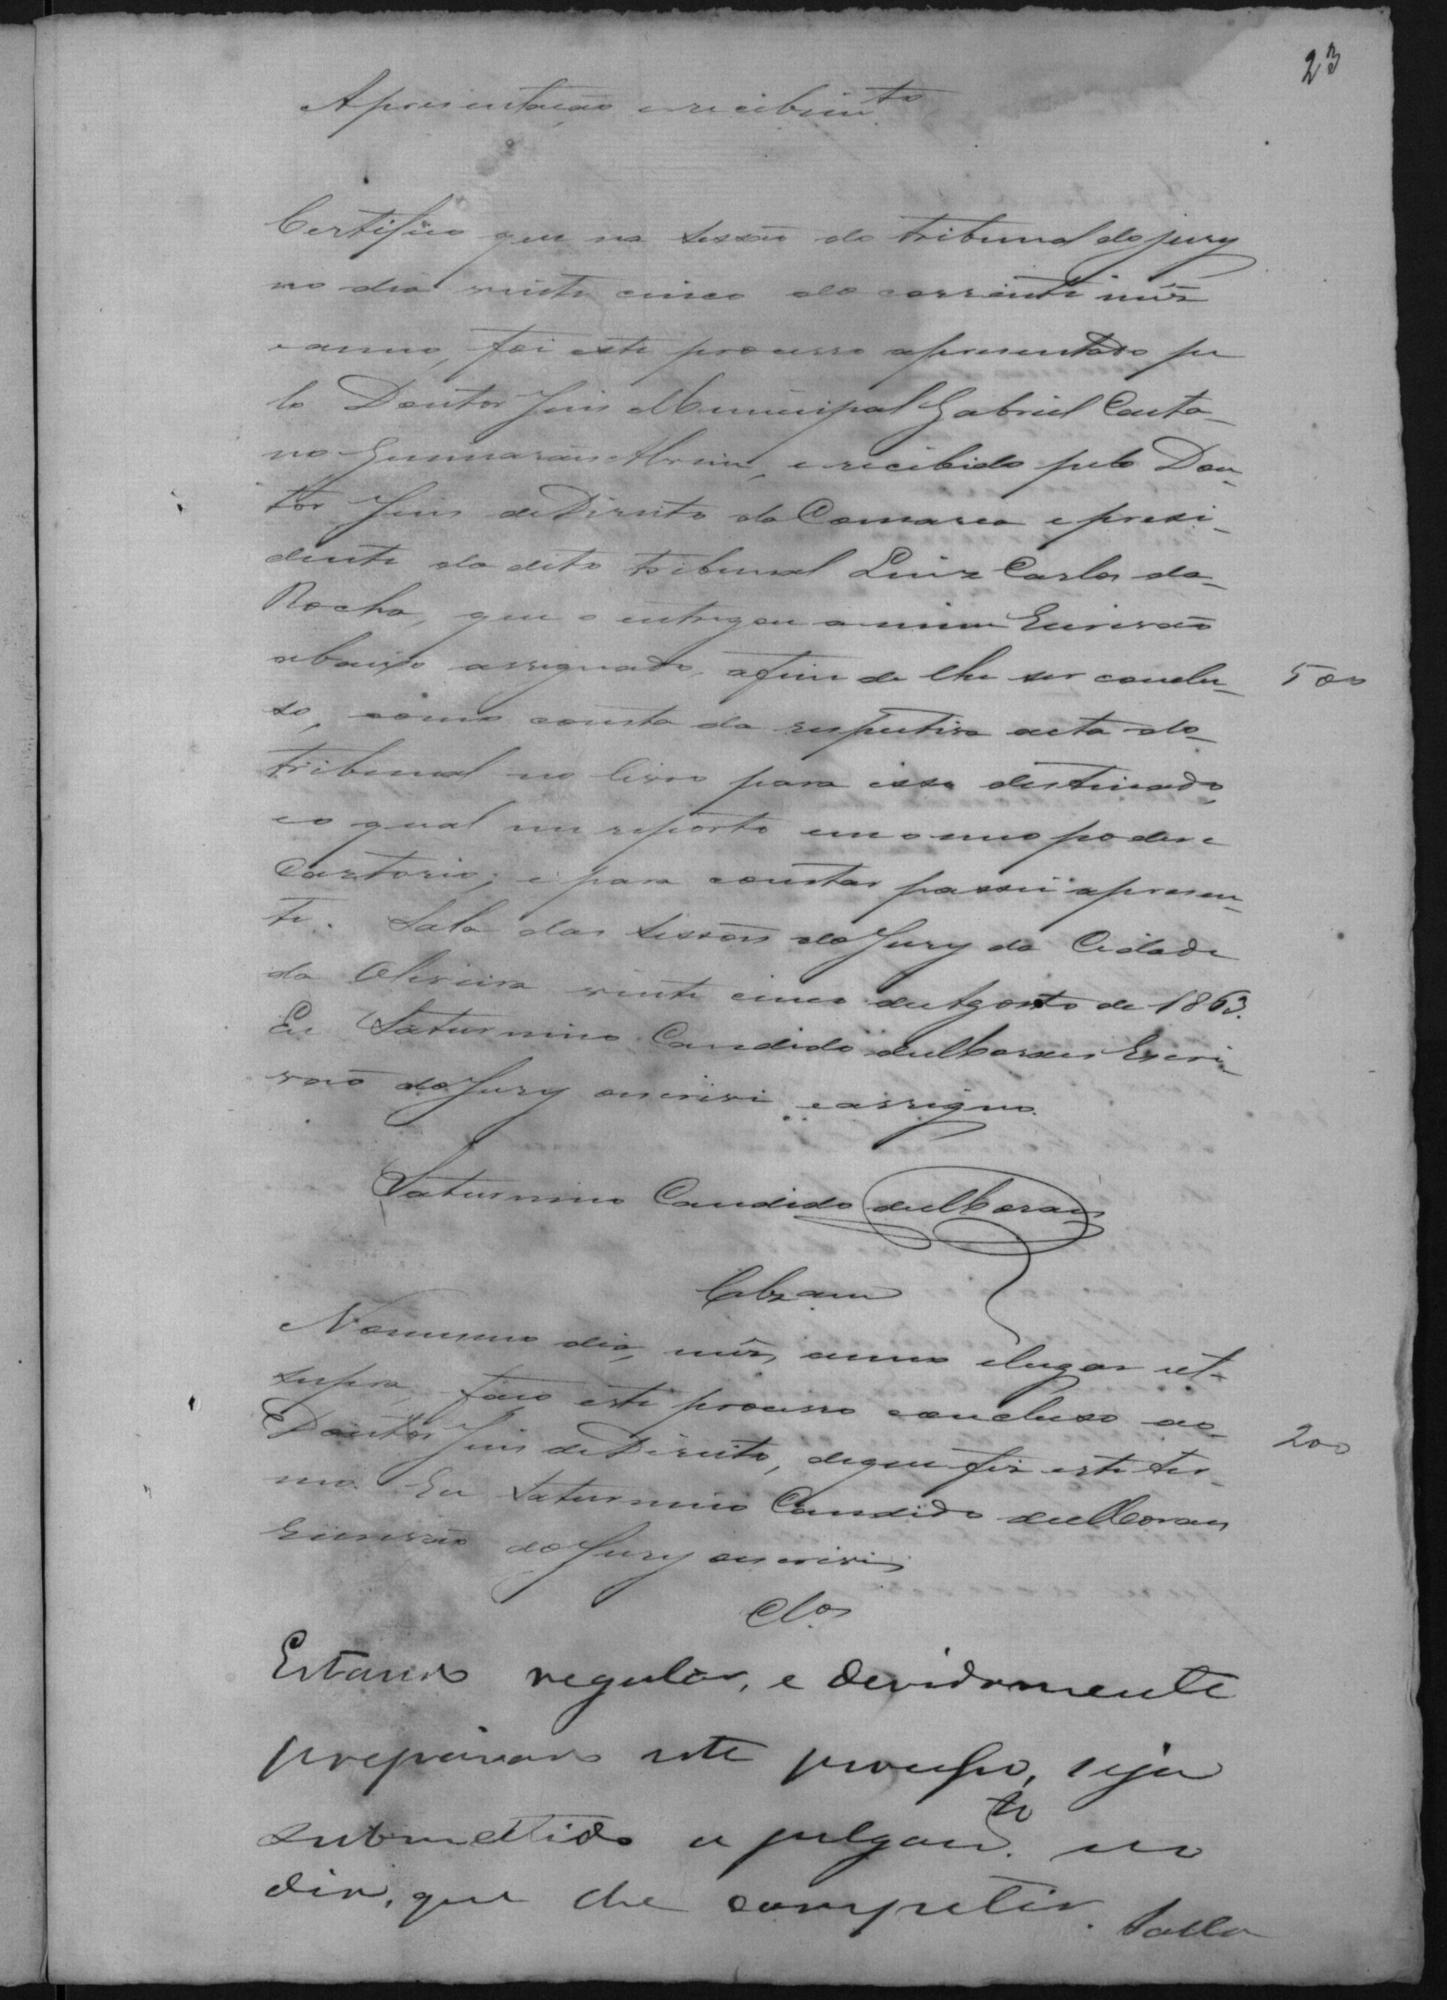 23
Apresentação e recebim.to
Certifico que na sessão do tribunal do jury
no dia vinte cinco do corrente mês
e anno, foi este processo apresentado pe
lo Doutor Juis Municipal Gabriel Caeta-
no Guimarães Alvim, e recibido pelo Dou-
tor Juis de Direito da Comarca e presi-
dente do dito tribunal Luiz Carlos da
Rocha, que o entregou a mim Escrivão
abaixo assignado, afim de lhe ser conclu-
500
so, como consta da respectiva acta do
tribunal no livro para isso destinado,
e o qual me reporto em o meo poder e
Cartorio; e para constar passei a presen-
te. Sala das sessões do Jury da Cidade
da Oliveira vinte cinco de Agosto de 1863.
Eu Saturnino Candido de Moraes Escri-
vão do Jury escrivi e assigno.
Saturnino Candido de Moraes
Clzam
No mesmo dia, mês, anno e lugar ut
supra, faço este processo concluso ao
Doutor Juis de Direito, de que fiz este ter-
200
mo. Eu Saturnino Candido de Moraes
Escrivão do Jury escrivi
Clos
Estando regular, e devidamente
preparado este processo, seja
submettido a julgam.to no
dia, que lhe competir. Salla